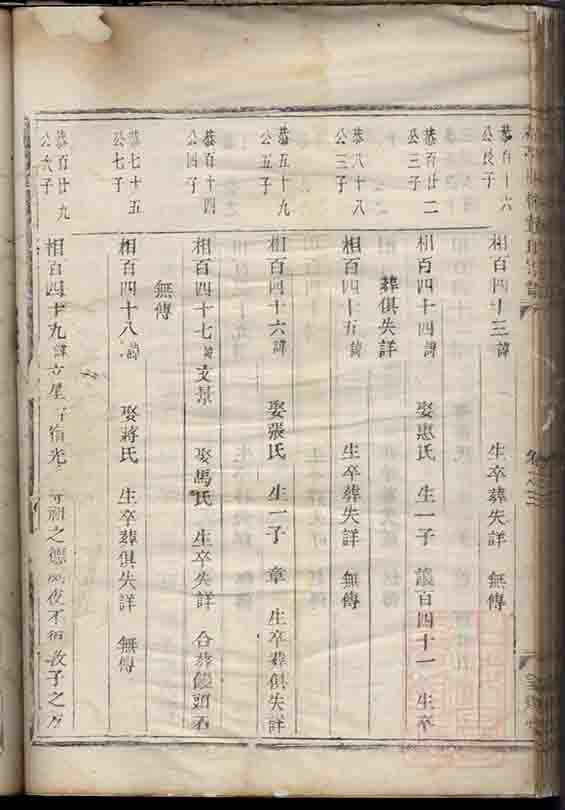 恭百十六
公長子
相百四十三諱 生卒葬失詳 無傳
恭百廿二
公三子
相百四十四諱 娶惠氏 生一子 讓百四十一 生卒
葬俱失詳
恭八十八
公三子
相百四十五諱 生卒葬失詳 無傳
恭五十九
公五子
相百四十六諱 娶張氏 生一子 章 生卒葬俱失詳
恭百十四
公四子
相百四十七諱文景 娶馬氏 生卒失詳 合葬饅頭石
無傳
恭七十五
公七子
相百四十八諱 娶蔣氏 生卒葬俱失詳 無傳
恭百廿九
公六子
相百四十九諱立星 宿光 祖之德 夜不 教子之方
卷之三